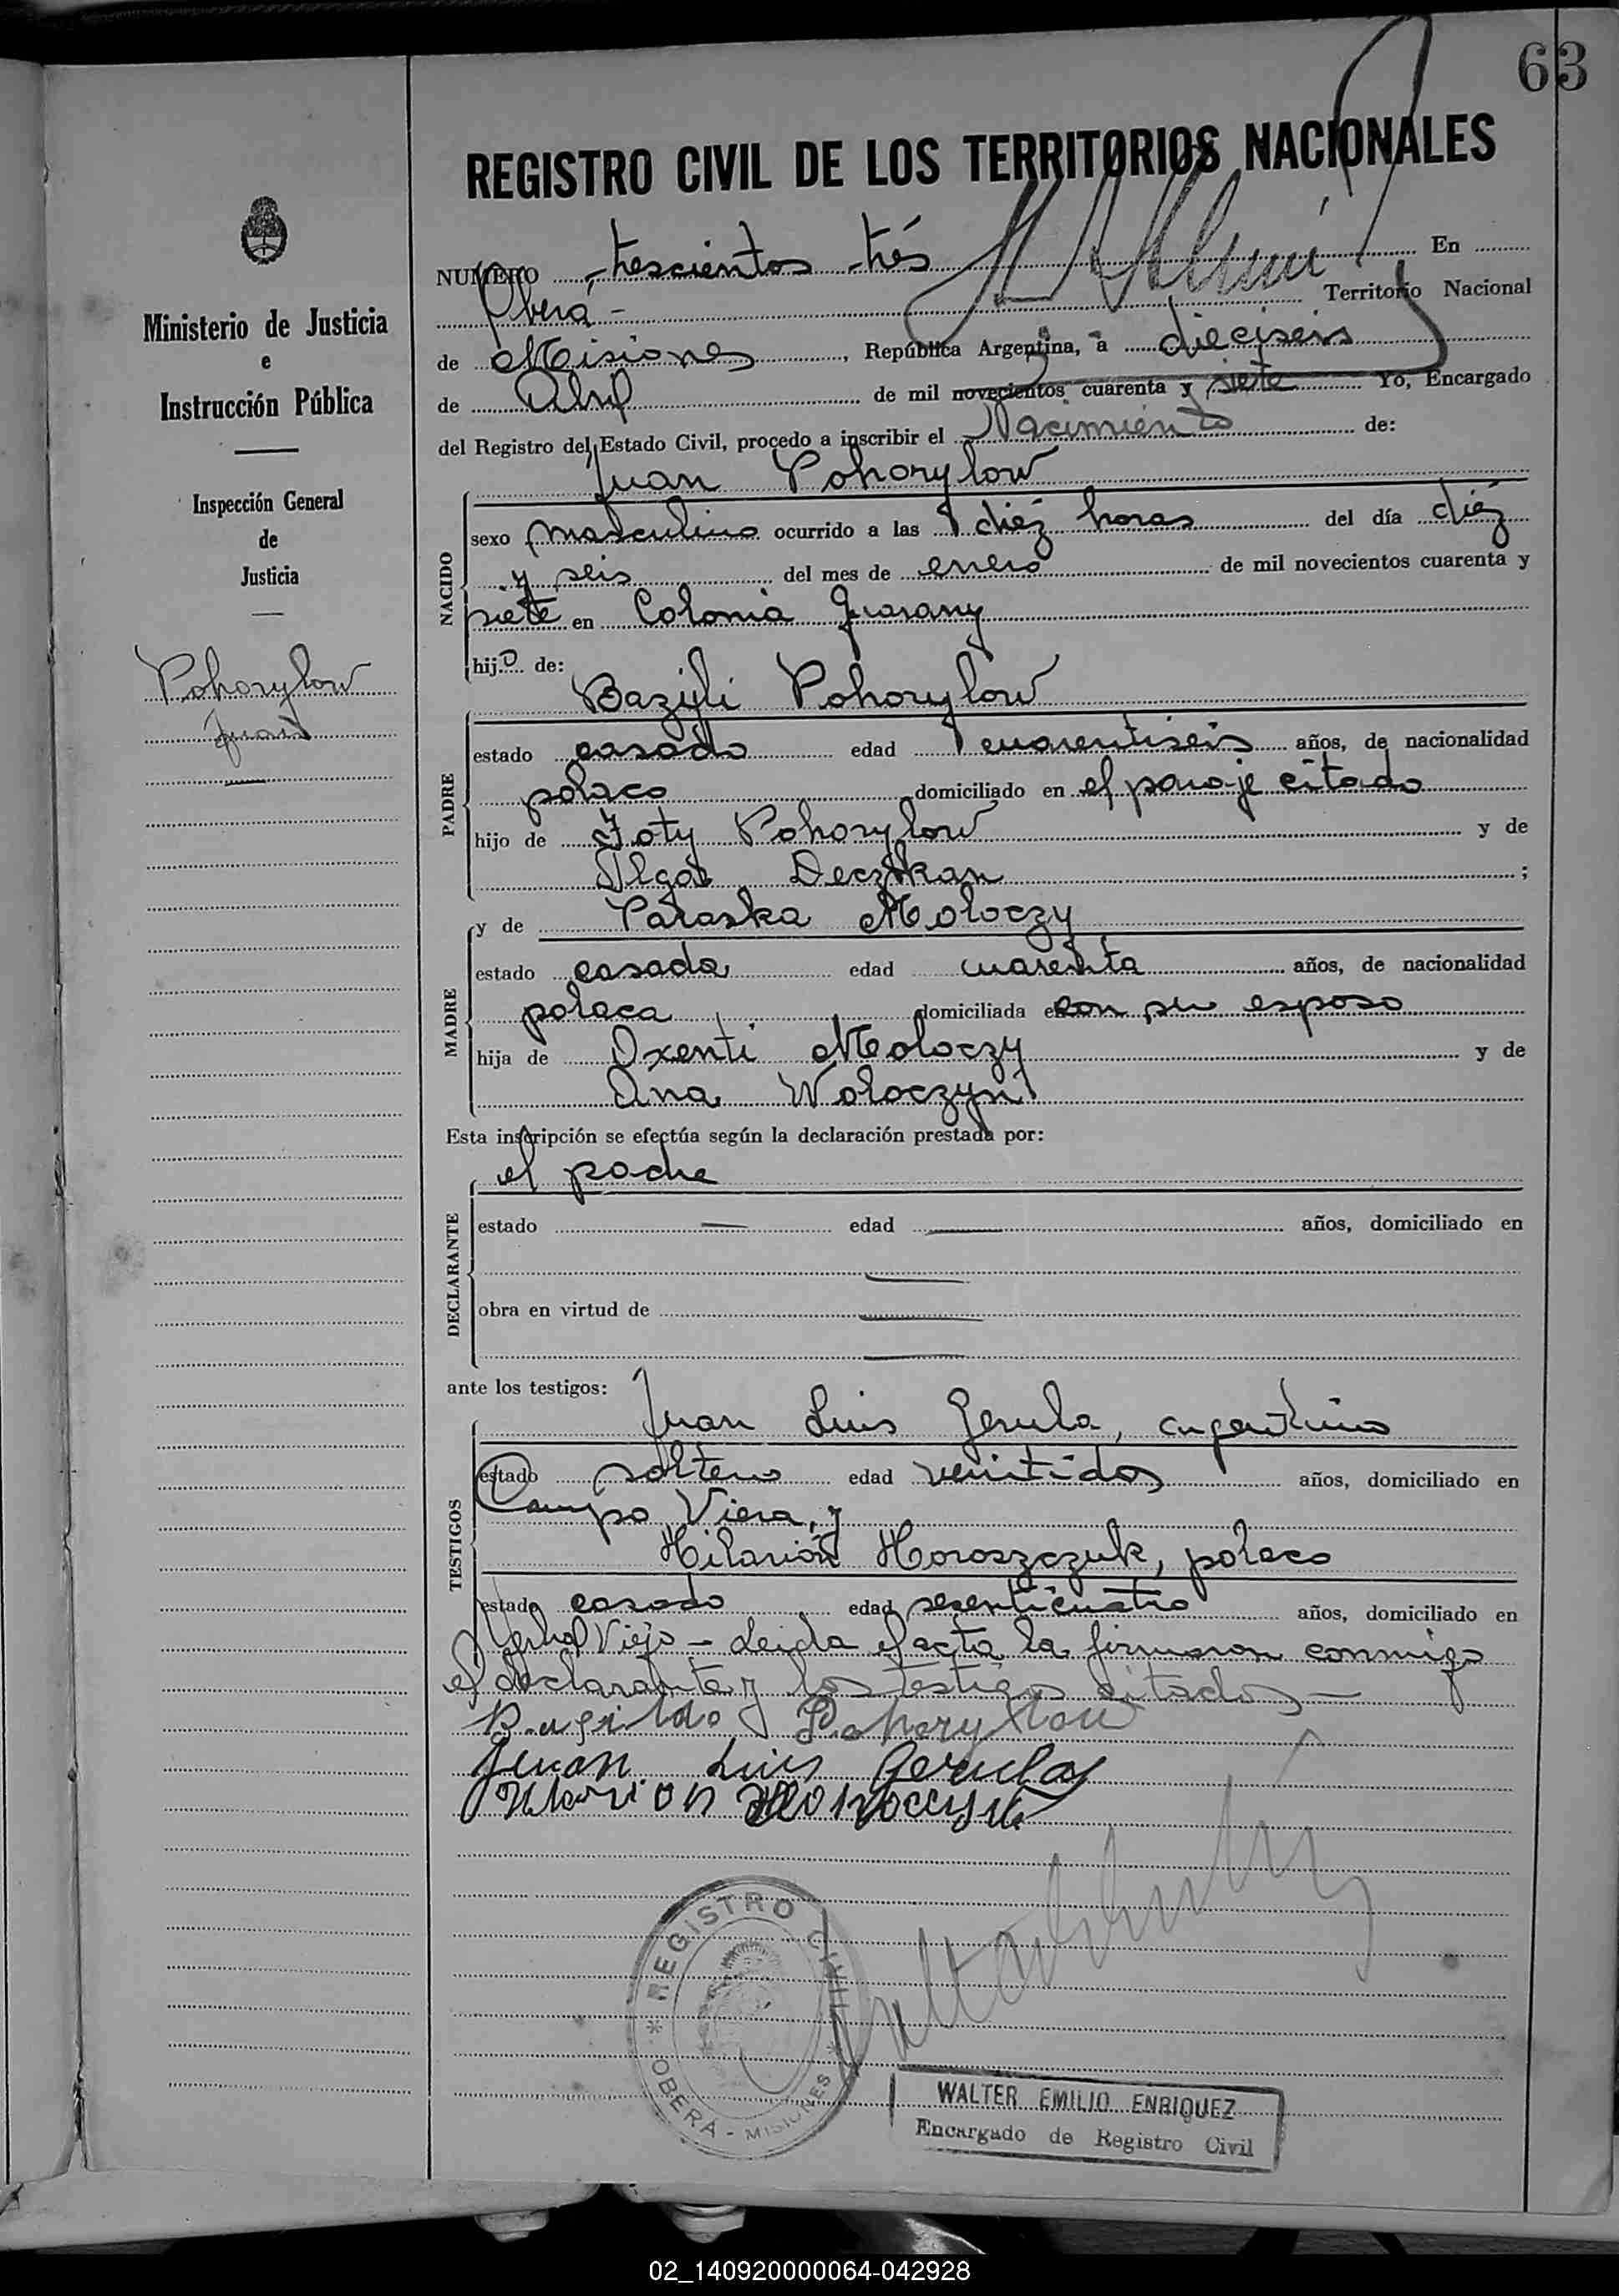 63
REGISTRO CIVIL DE LOS TERRITORIOS NACIONALES
Ministerio de Justicia
e
Instrucción Pública
Inspección General
de
Justicia
Pohorylow
Juan
NUMERO trescientos trés En
Oberá - Territorio Nacional
de Misiones, República Argentina, a dieciseis
de Abril de mil novecientos cuarenta y siete Yo, Encargado
del Registro del Estado Civil, procedo a inscribir el Nacimiento de:
Juan Pohorylow
NACIDO
sexo masculino ocurrido a las diéz horas del día diéz
y seis del mes de enero de mil novecientos cuarenta y
siete en Colonia Guarany
hijo de:
Bazyli Pohorylow
PADRE
estado casado edad cuarentiseis años, de nacionalidad
polaco domiciliado en el paraje citado
hijo de Foty Pohorylow y de
Olga Deczkan ;
y de Paraska Moloczy
MADRE
estado casada edad cuarenta años, de nacionalidad
polaca domiciliada en con su esposo
hija de Oxenti Moloczy y de
Ana Woloczyn
Esta inscripción se efectúa según la declaración prestada por:
el padre
DECLARANTE
estado — edad — años, domiciliado en
—
obra en virtud de —
—
ante los testigos:
Juan Luis Gerula, argentino
TESTIGOS
estado soltero edad veintidos años, domiciliado en
Campo Viera, y
Hilarión Horoszczuk, polaco
estado casado edad sesenticuatro años, domiciliado en
Yerbal Viejo - Leida el acta la firmaron conmigo
el declarante y los testigos citados -
Pohorylow
Juan Luis Gerula
REGISTRO CIVIL
* OBERÁ - MISIONES *
WALTER EMILIO ENRIQUEZ
Encargado de Registro Civil
02_140920000064-042928